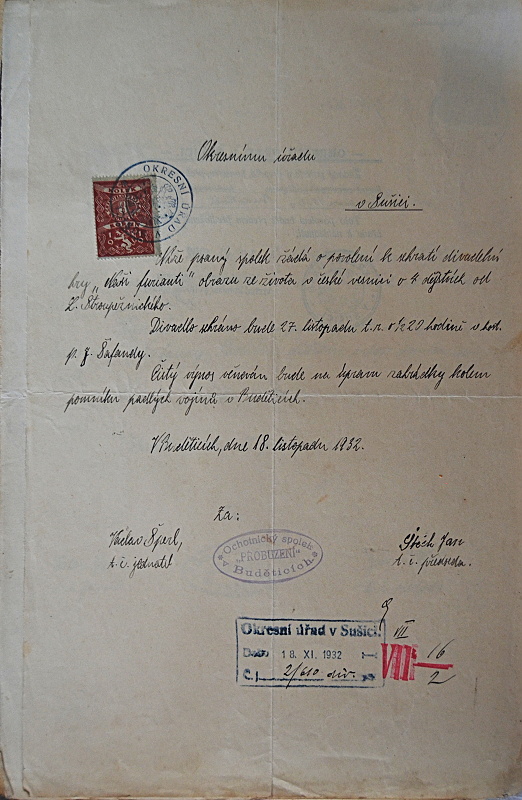 Okresnímu úřadu
v Sušici.
KOLEK
OKRESNÍ ÚŘAD V
Níže psaný spolek žádá o povolení k sehrátí divadelní
hry „Naši furianti" obrazu ze života v české vesnici o 4 dějstvích od
L. Stroupežnického.
Divadlo sehráno bude 27. listopadu t. r. o ½ 20 hodině v host.
p. J. Šafandy.
Čistý výnos věnován bude na úpravu zahrádky kolem
pomníku padlých vojínů v Buděticích.
V Buděticích, dne 18. listopadu 1932.
Za:
Václav Šperl,
t. č. jednatel
Ochotnický spolek
"PROBUZENÍ"
v Buděticích
Štěch Jan
t. č. předseda.
VII
Okresní úřad v Sušici.
Došlo 18. XI. 1932
Č. j. 2/610 div.
VIII 16
2